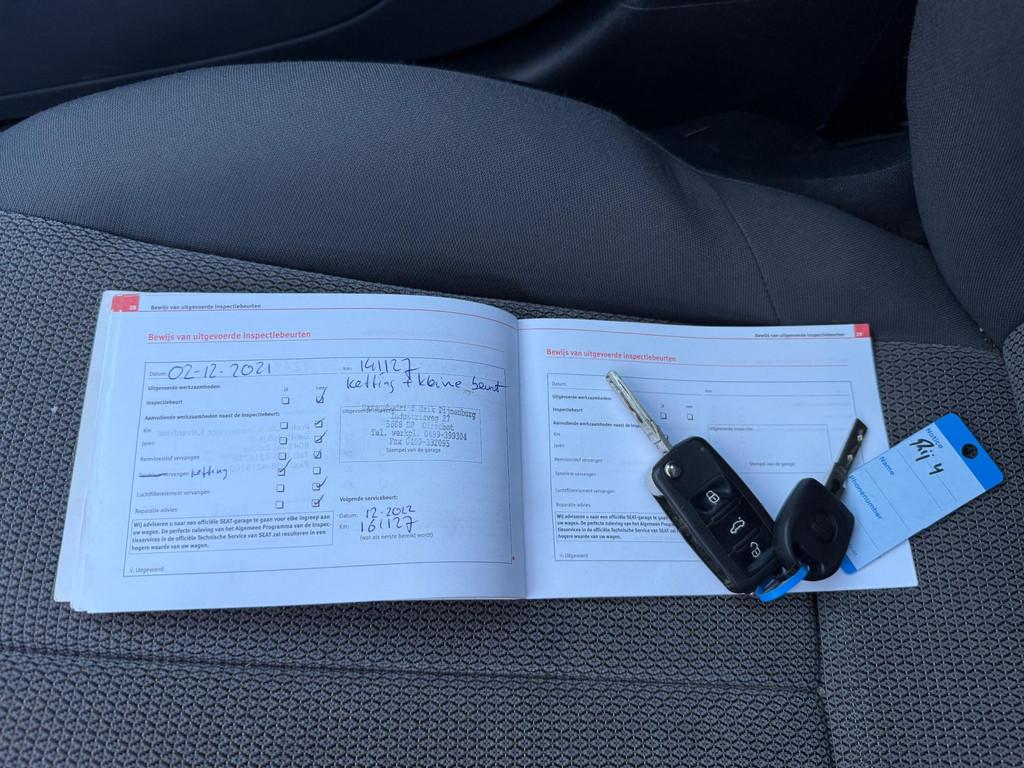 28 Bewijs van uitgevoerde inspectiebeurten
Bewijs van uitgevoerde inspectiebeurten
Datum: 02-12-2021 km: 141127
ketting + kleine beurt
Uitgevoerde werkzaamheden: ja nee
Inspectiebeurt
Aanvullende werkzaamheden naast de inspectiebeurt:
Km
Jaren
Remvloeistof vervangen
vervangen ketting
Luchtfilterelement vervangen
Reparatie advies
Industrieweg 27
5688 DP Oirschot
Tel. werkpl. 0499-399304
Fax 0499-332095
Stempel van de garage
Volgende servicebeurt:
Datum: 12-2022
Km: 161127
(wat als eerste bereikt wordt)
Wij adviseren u naar een officiële SEAT-garage te gaan voor elke ingreep aan
uw wagen. De perfecte naleving van het Algemeen Programma van de Inspec-
tieservices in de officiële Technische Service van SEAT zal resulteren in een
hogere waarde van uw wagen.
√: Uitgevoerd
Bewijs van uitgevoerde inspectiebeurten 29
Bewijs van uitgevoerde inspectiebeurten
Datum: km:
Uitgevoerde werkzaamheden:
Inspectiebeurt ja nee
Aanvullende werkzaamheden naast de
Km
Jaren
Remvloeistof vervangen
vervangen
Luchtfilterelement vervangen
Reparatie advies
Stempel van de garage
Wij adviseren u naar een officiële SEAT-garage te gaan voor
uw wagen. De perfecte naleving van het Algemeen
tieservices in de officiële Technische Service van SEAT zal
hogere waarde van uw wagen.
√: Uitgevoerd
Notice
Name